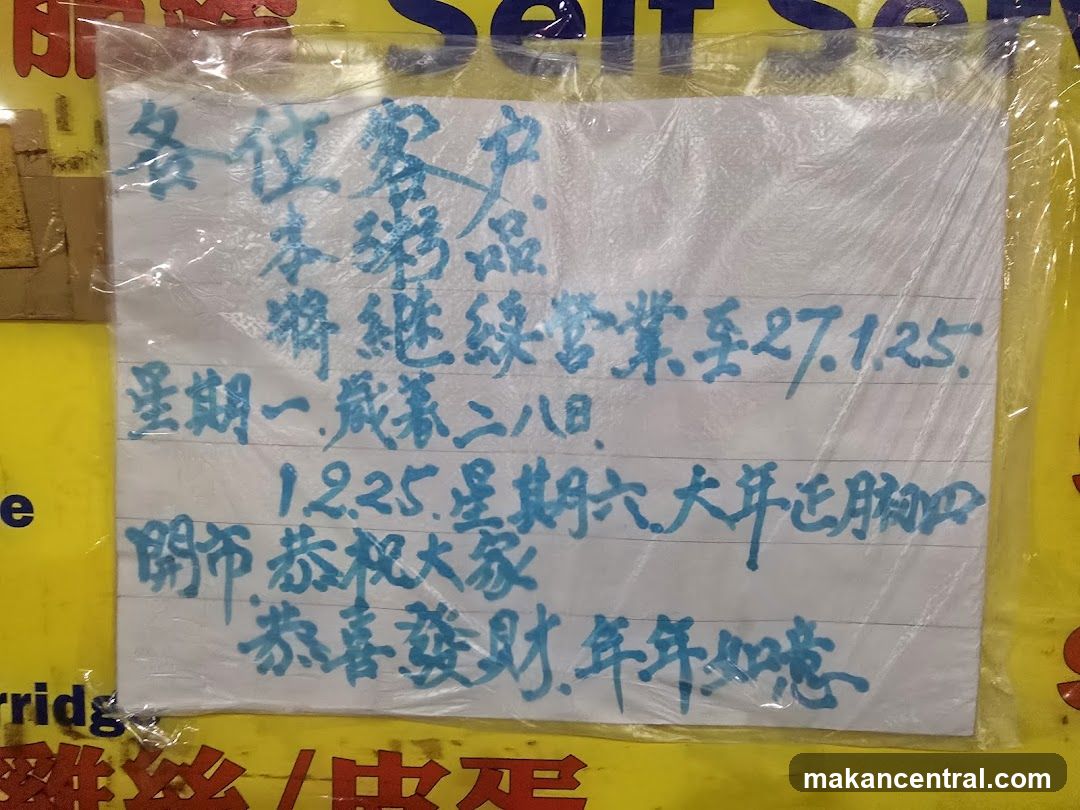 Self Serv
各位客户.
本粥品
將继續營業至27.1.25.
星期一.歲暮二八日.
1.2.25.星期六.大年正月初四
開市.恭祝大家
恭喜發財.年年如意
e
rridge
雞絲/皮蛋
makancentral.com